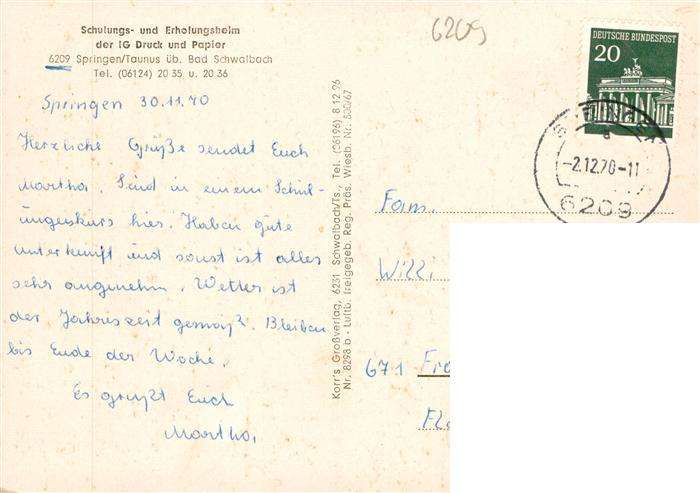 Schulungs- und Erholungsheim
der IG Druck und Papier
6209 Springen/Taunus üb. Bad Schwalbach
Tel. (06124) 20 35 u. 20 36
6209
Springen 30.11.70
Herzliche Grüße sendet Euch
Martha. Sind in einem Schul-
ungskurs hier. Haben gute
Unterkunft und sonst ist alles
sehr angenehm. Wetter ist
der Jahreszeit gemäß. Bleiben
bis Ende der Woche.
Es grüßt Euch
Martha.
Korr's Großverlag, 6231 Schwalbach/Ts., Tel. (06196) 8 12 96
Nr. 8298 b - Luftb. freigegeb. Reg. Präs. Wiesb. Nr. 830/67
DEUTSCHE BUNDESPOST
20
a
-2.12.70-11
6209
Fam.
Willi
671 Fra
Fl